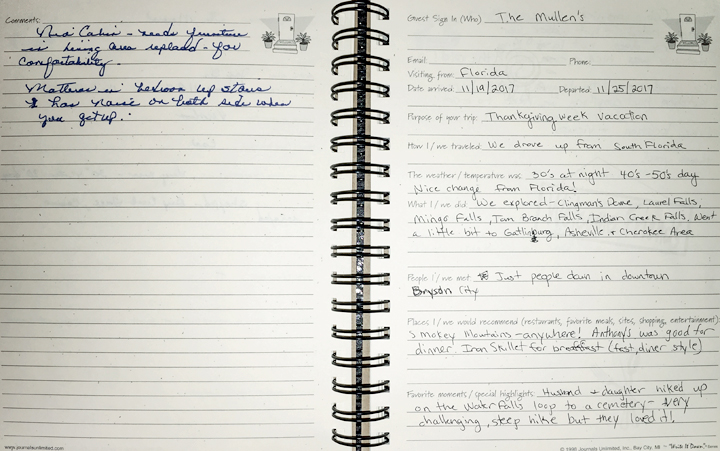 Comments:
Nice Cabin - needs furniture
in living area replaced - for
comfortability.
Mattress in bedroom up stairs
has noise on both side when
you get up.
www.journalsunlimited.com
Guest Sign In (Who) The Mullen's
Email: Phone:
Visiting from: Florida
Date arrived: 11/19/2017 Departed: 11/25/2017
Purpose of your trip: Thanksgiving week vacation
How I / we traveled: We drove up from South Florida
The weather / temperature was: 30's at night 40's-50's day
Nice change from Florida!
What I / we did: We explored - Clingman's Dome, Laurel Falls,
Mingo Falls, Tom Branch Falls, Indian Creek Falls. Went
a little bit to Gatlinburg, Asheville, & Cherokee Area
People I / we met: Just people down in downtown
Bryson City
Places I / we would recommend (restaurants, favorite meals, sites, shopping, entertainment):
Smokey Mountains - anywhere! Anthony's was good for
dinner. Iron Skillet for breakfast (fast, diner style)
Favorite moments / special highlights: Husband & daughter hiked up
on the Waterfalls loop to a cemetery - Very
challenging, steep hike but they loved it!
© 1996 Journals Unlimited, Inc., Bay City, MI - "Write It Down."